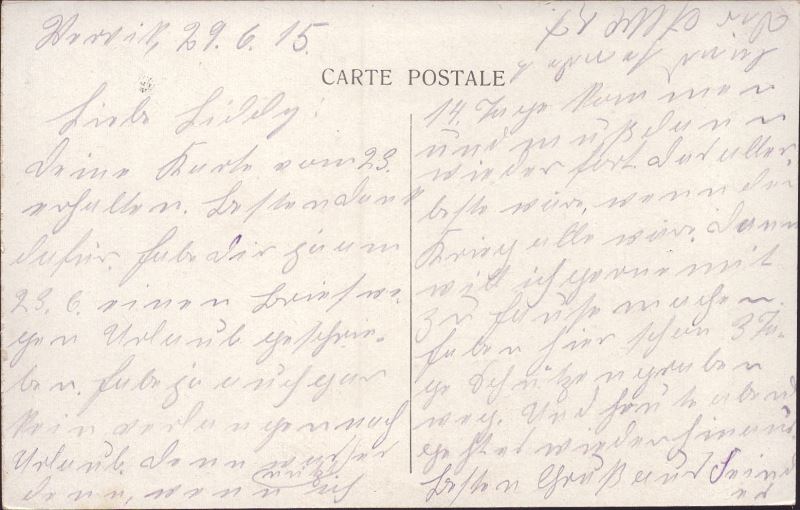 Wervik, 29.6.15.
CARTE POSTALE
Liebe Liddy!
Deine Karte vom 23.
erhalten. Besten Dank
dafür. Habe Dir ja am
23.6. einen Brief we-
gen Urlaub geschrie-
ben. Habe ja auch gar
kein verlangen nach
Urlaub. Denn
denn, wenn ich
14. Tage kommen
und muß dann
wieder fort. Das aller-
beste wäre, wenn der
Krieg alle wäre. Dann
will ich gerne mit
zu Hause machen.
Haben hier schon 3 Ta-
ge Schützengraben
weg. Und heute abend
geht es wieder hinaus
Besten Gruß aus